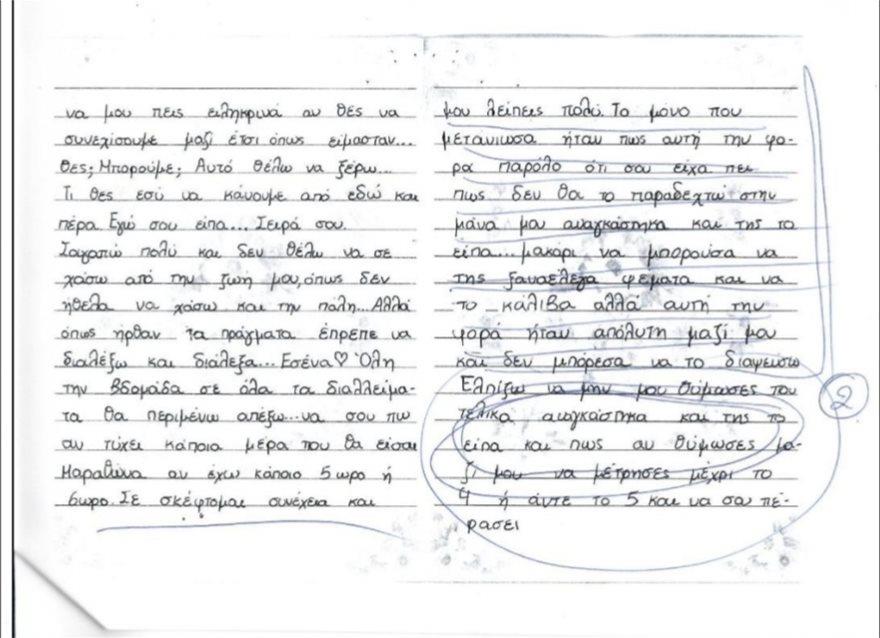 να μου πεις ειλικρινά αν θες να
συνεχίσουμε μαζί έτσι όπως είμασταν...
Θες; Μπορούμε; Αυτό θέλω να ξέρω...
Τι θες εσύ να κάνουμε από εδώ και
πέρα. Εγώ σου είπα... Σειρά σου.
Σαγαπώ πολύ και δεν θέλω να σε
χάσω από την ζωή μου, όπως δεν
ήθελα να χάσω και την πάλη... Αλλά
όπως ήρθαν τα πράγματα έπρεπε να
διαλέξω και διάλεξα... Εσένα♡ Όλη
την βδομάδα σε όλα τα διαλλείμα-
τα θα περιμένω απέξω... να σου πω
αν τύχει κάποια μέρα που θα είσαι
Μαραθώνα αν έχω κάποιο 5ωρο ή
6ωρο. Σε σκέφτομαι συνέχεια και
μου λείπεις πολύ. Το μόνο που
μετάνιωσα ήταν πως αυτή την φο-
ρά παρόλο ότι σου είχα πει
πως δεν θα το παραδεχτώ στην
μάνα μου αναγκάστηκα και της το
είπα... μακάρι να μπορούσα να
της ξαναέλεγα ψέματα και να
το κάλιβα αλλά αυτή την
φορά ήταν απόλυτη μαζί μου
και δεν μπόρεσα να το διαψεύσω
Ελπίζω να μην μου θύμωσες που
τελικά αναγκάστηκα και της το
είπα και πως αν θύμωσες μα-
ζί μου να μέτρησες μέχρι το
4 ή άντε το 5 και να σου πέ-
ρασει
2